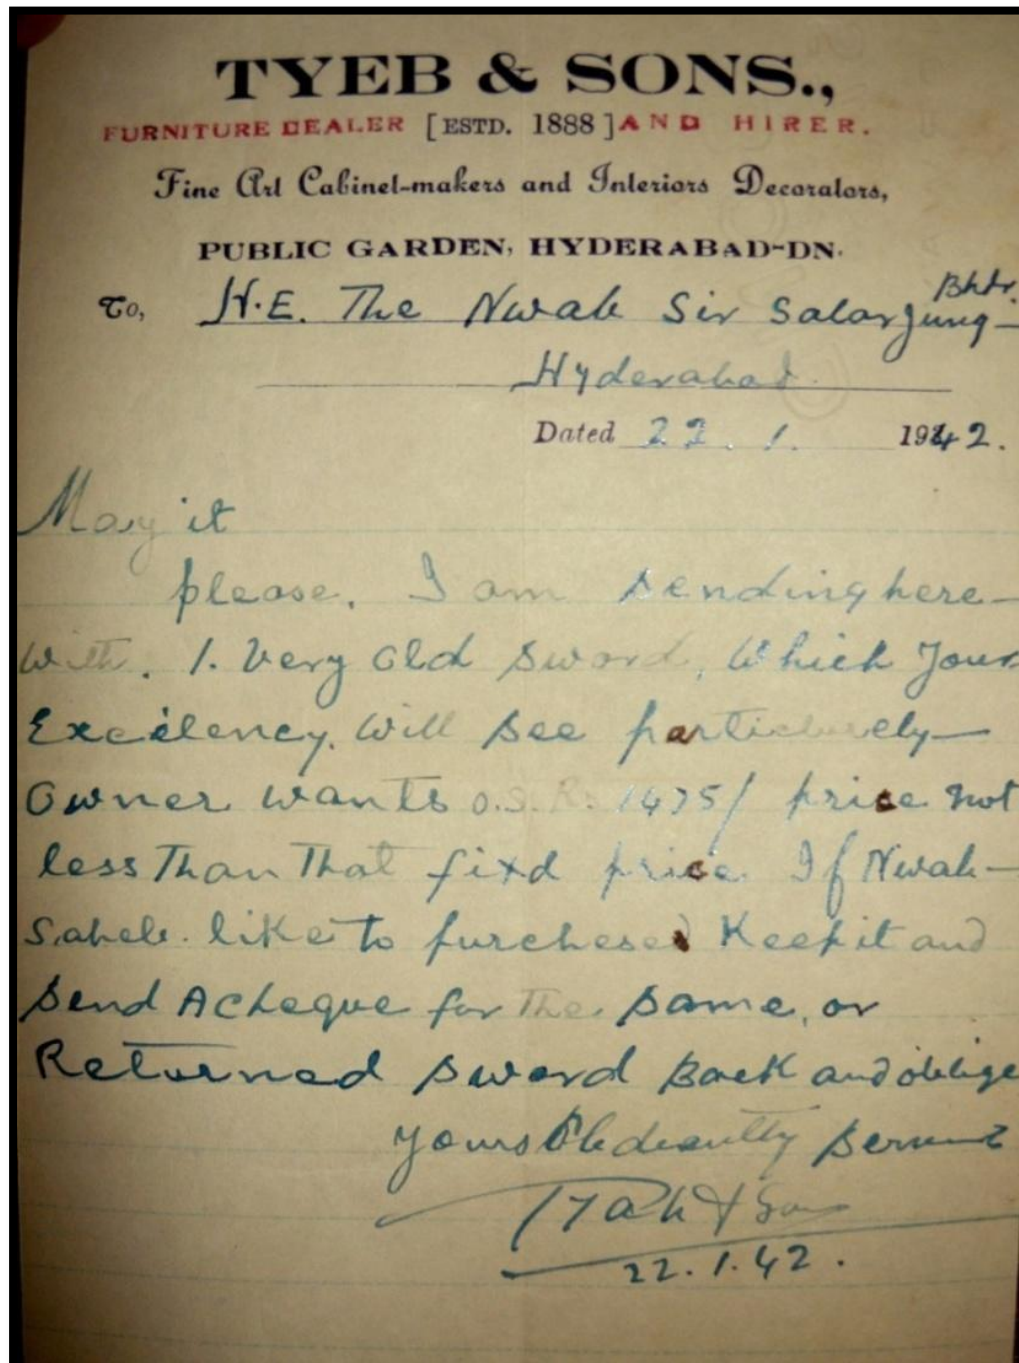 TYEB & SONS.,
FURNITURE DEALER [ESTD. 1888] AND HIRER.
Fine Art Cabinet-makers and Interiors Decorators,
PUBLIC GARDEN, HYDERABAD-DN.
To, H.E. The Nwab Sir Salar Jung Bhdr.
Hyderabad.
Dated 22.1. 1942.
May it
please. I am sending here-
with. 1. Very old sword, Which Your
Excelency. Will see particularely-
Owner wants O.S. Rs 1475/ price not
less Than That fixd price. If Nwab-
Saheb. like to purchesed Keep it and
send A cheque for The same, or
Returned sword Back and oblige
Yours Obdeantly servant
Tyab & Sons
22.1.42.